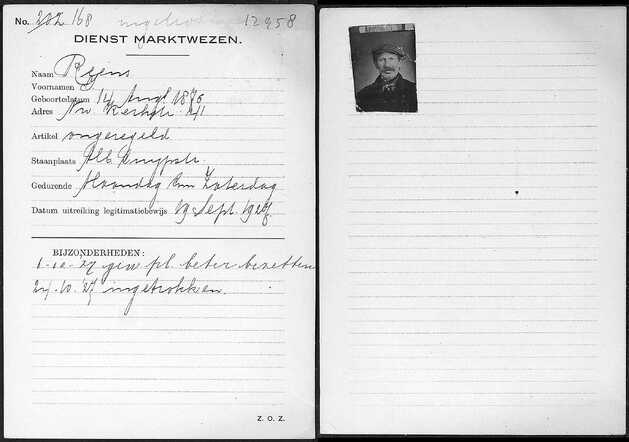 No. 202 168 ingetrokken 12958
DIENST MARKTWEZEN.
Naam Reens
Voornamen
Geboortedatum 14 Aug 1876
Adres Nw. Kerkstr. 41
Artikel ongeregeld
Staanplaats Alb. Cuypstr.
Gedurende Maandag t/m Zaterdag
Datum uitreiking legitimatiebewijs 19 Sept. 1927
BIJZONDERHEDEN:
6-10-27 gew. pl. beter bezetten
24-10-27 ingetrokken.
Z. O. Z.